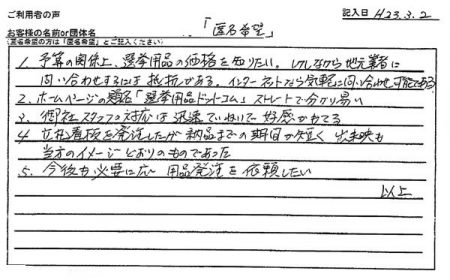 ご利用者の声
記入日 H23.3.2
お客様の名前or団体名 「匿名希望」
(匿名希望の方は「匿名希望」とご記入ください)
1. 予算の関係上、選挙用品の価格を知りたい。しかしながら地元業者に
問い合わせするには抵抗がある。インターネットなら気軽に問い合わせ可能である
2. ホームページの題名「選挙用品ドットコム」ストレートで分り易い
3. 御社スタッフの対応は迅速でていねいで好感がもてる
4 立札看板を発注したが納品までの期間が短く 出来映も
当方のイメージどおりのものであった
5. 今後も必要に応じ 用品発注を依頼したい
以上